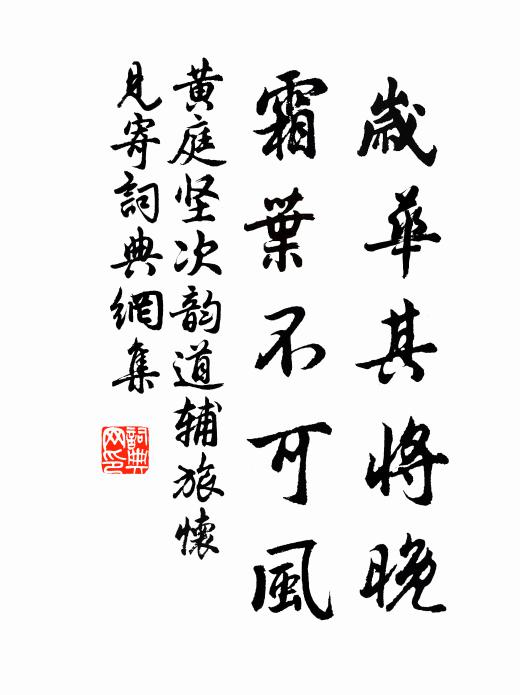 歲華其將晚
霜葉不可風
黄庭坚次韵道辅旅懷
見寄詞典網集
詞典
网印